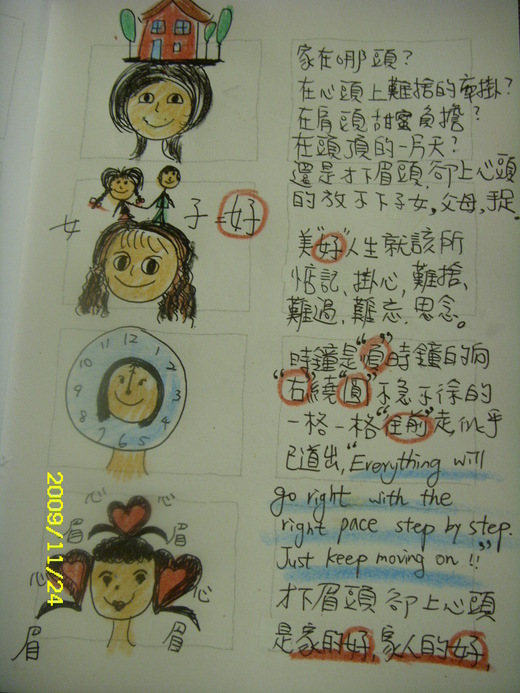 家在哪頭？
在心頭上難捨的牽掛？
在肩頭甜蜜負擔？
在頭頂的一片天？
還是才下眉頭，卻上心頭
的放不下子女，父母，手足.
女 子=好
美"好"人生就該所
惦記、掛心、難捨、
難過、難忘、思念。
12
1
2
3
4
5
6
7
8
9
10
11
時鐘是"順"時鐘的向
"右"繞"圓"不急不徐的
一格一格"往前"走,似乎
已道出,"Everything will
go right with the
right pace step by step.
Just keep moving on !!"
心 心 心
眉 眉 眉 眉
才下眉頭 卻上心頭
是家的好,家人的好,
2009/11/24